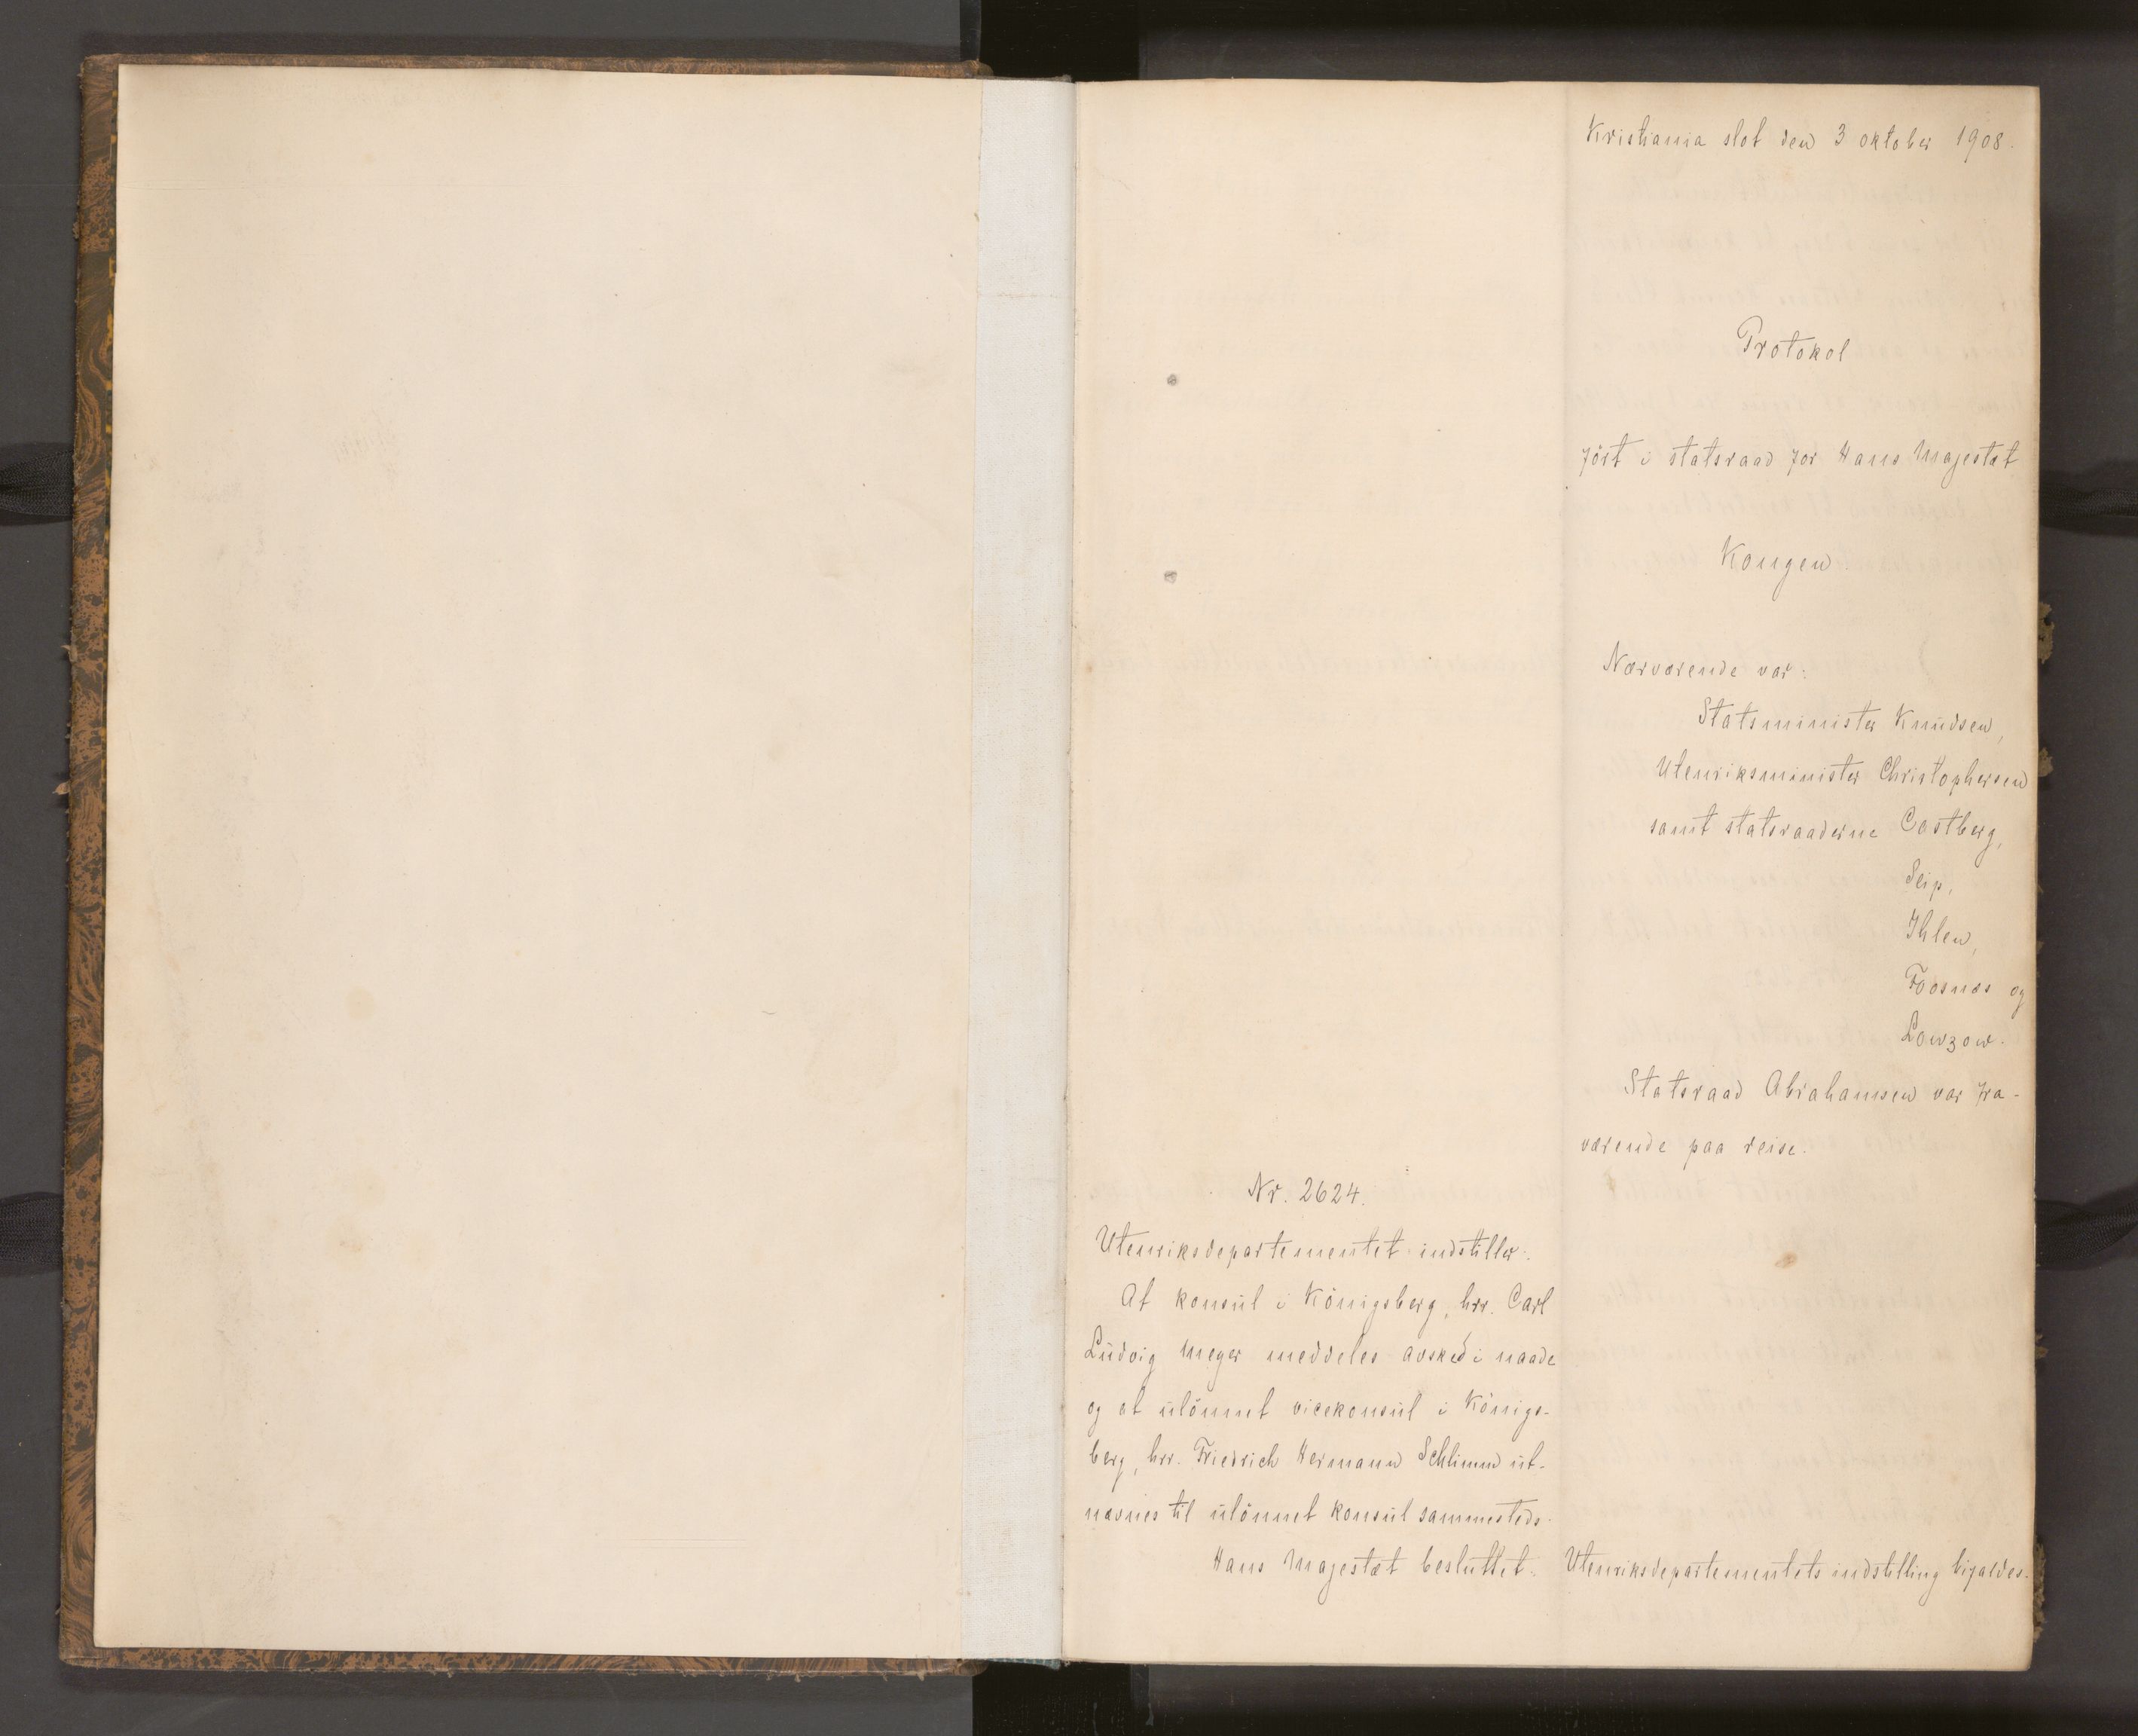 Kristiania slot den 3 oktober 1908.
Protokol
ført i statsraad for Hans Majestæt
Kongen.
Nærværende var:
Statsminister Knudsen,
Utenriksminister Christophersen
samt statsraaderne Castberg,
Seip,
Ihlen,
Foosnæs og
Lowzow.
Statsraad Abrahamsen var fra-
værende paa reise.
Nr. 2624.
Utenriksdepartementet indstiller:
At konsul i Königsberg, hrr. Carl
Ludvig Meyer meddeles avsked i naade
og at ulönnet vicekonsul i Königs-
berg, hrr. Friedrich Hermann Schlimm ut-
nævnes til ulönnet konsul sammesteds.
Hans Majestæt besluttet: Utenriksdepartementets indstilling bifaldes.